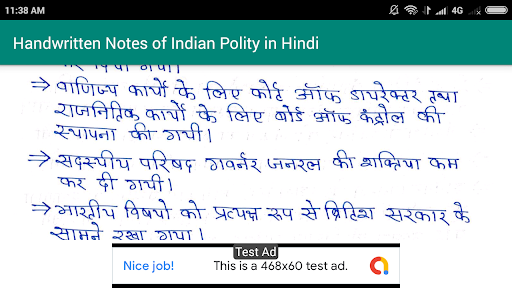 11:38 AM 4G
Handwritten Notes of Indian Polity in Hindi
⇒ वाणिज्य कार्यो के लिए कोर्ट ऑफ डायरेक्टर तथा
राजनितिक कार्यो के लिए बोर्ड ऑफ कंट्रोल की
स्थापना की गयी।
⇒ सदस्यीय परिषद गवर्नर जनरल की शक्तिया कम
कर दी गयी।
⇒ भारतीय विषयो को प्रत्यक्ष रूप से ब्रिटिश सरकार के
सामने रखा गया।
Test Ad
Nice job! This is a 468x60 test ad.